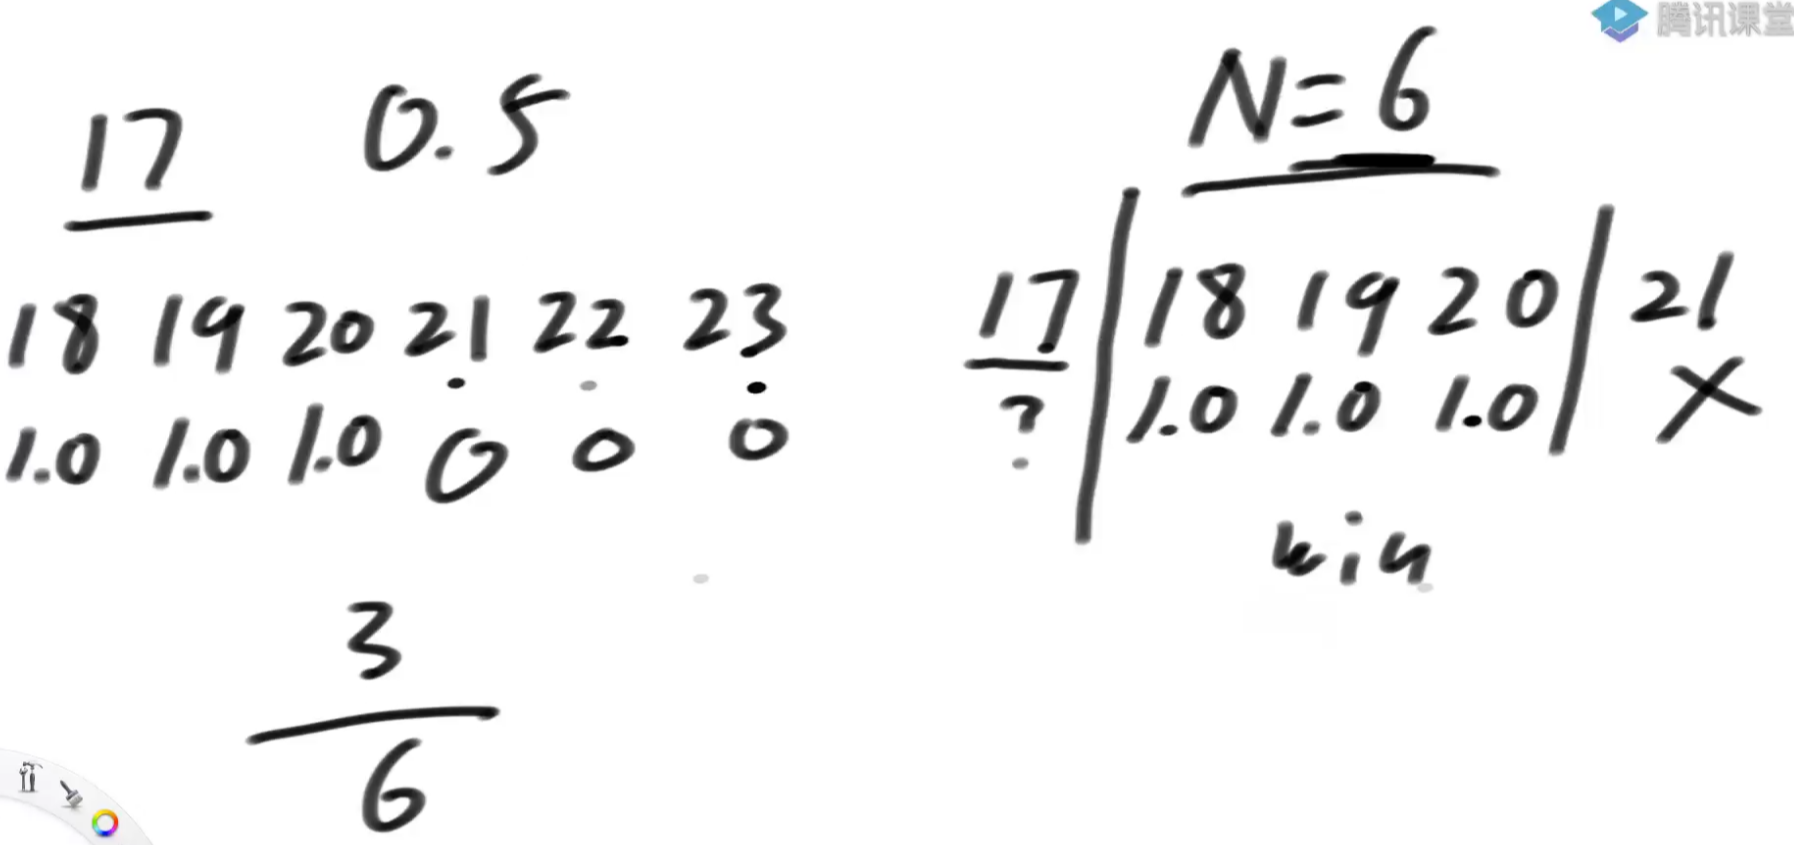 腾讯课堂
17 0.5
18 19 20 21 22 23
1.0 1.0 1.0 0 0 0
3
6
N=6
17 18 19 20 21
? 1.0 1.0 1.0 X
win